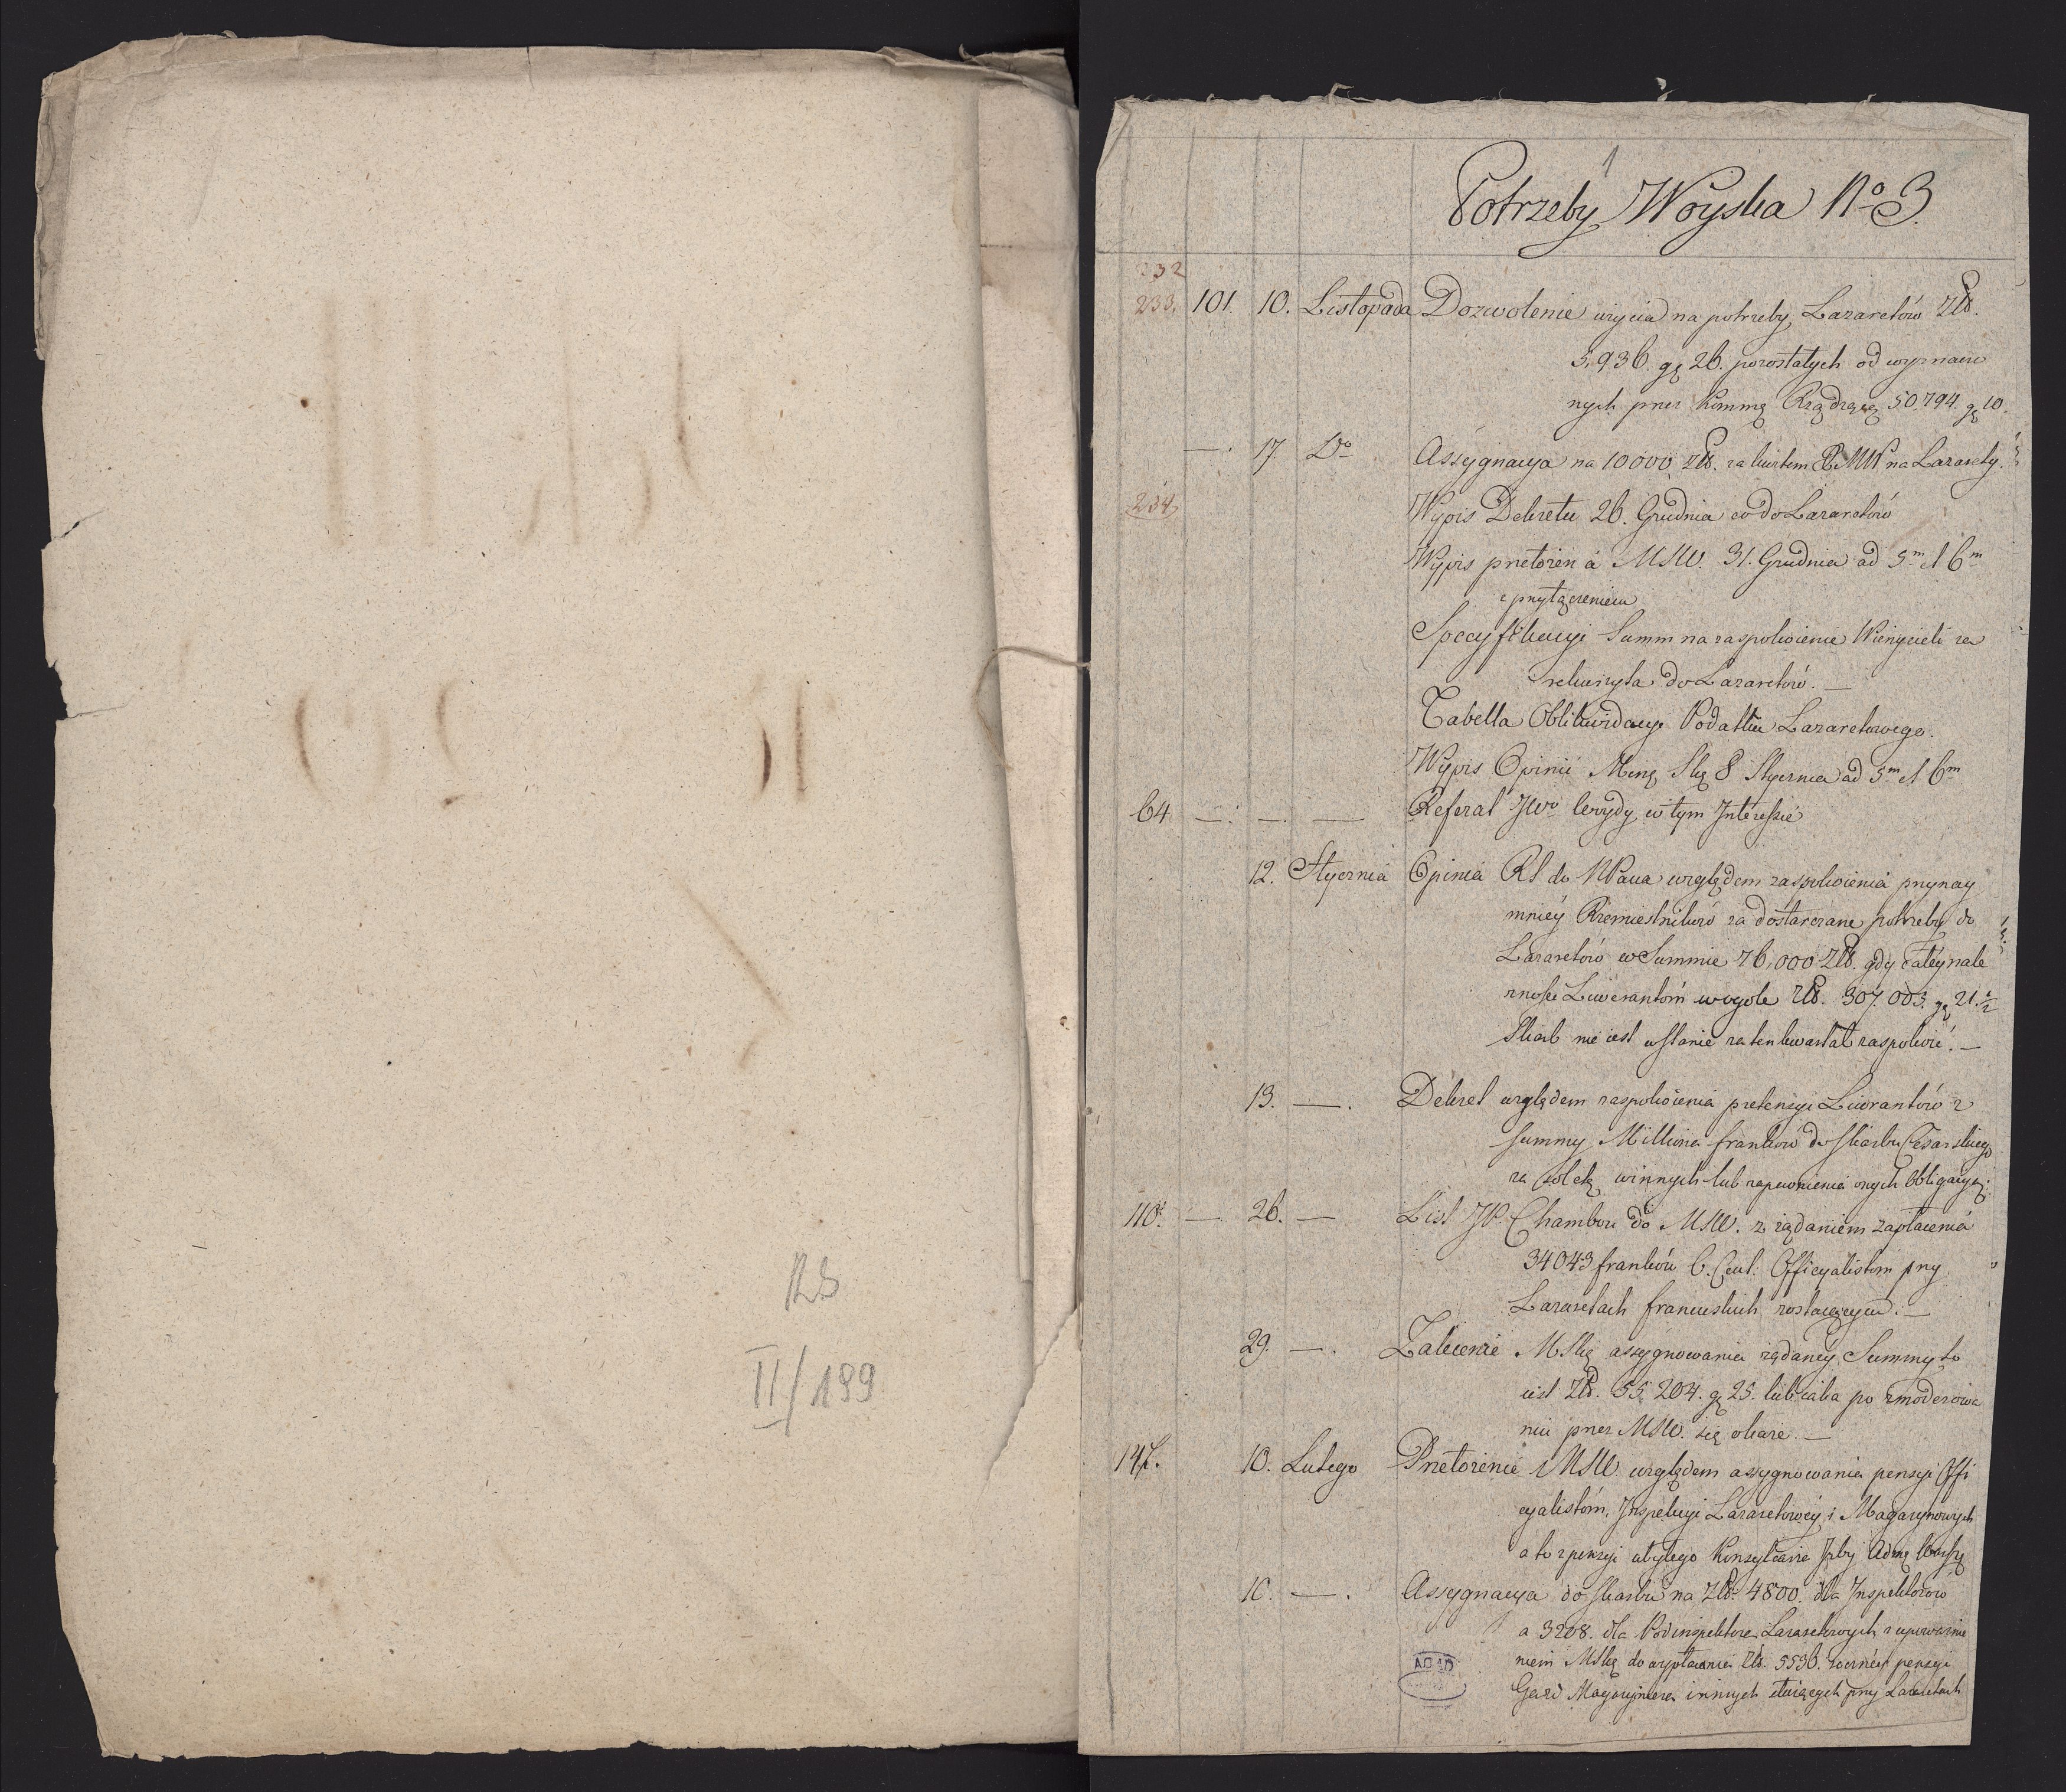 RS
II/199
1
Potrzeby Woyska No 3.
232
233. 101. 10. Listopada Dozwolenie użycia na potrzeby Lazaretów Złł.
5,936. gr 26. pozostałych od wyznaczo
nych przez Kommę Rządzącą 50.794. gr 10.
—. 17. Do Assygnacya na 10000 Złł. za kwitem na Lazarety.
234 Wypis Dekretu 26. Grudnia co do Lazaretów
Wypis przełożen a MSW. 31. Grudnia ad 5m et 6m
z przyłączeniem
Specyfikacyi Summ na zaspokoienie Wierzycieli za
rekwizyta do Lazaretów. —
Tabella Oblikwidacyi Podatku Lazaretowego.
Wypis Opinii Ming Skg 8 Stycznia ad 5m et 6m
64 —. —. — Referat JWo w tym Interessie
12. Stycznia Opinia RS do NPana względem zaspokoienia przynay
mniey Rzemieslników za dostarczane potrzeby do
Lazaretów w Summie 76,000 Złł. gdy całey nale
żności Liwerantom wogole Złł. 307.003. gr 21 1/2
Skarb nie iest w stanie za ten kwartał zaspokoić. —
13. —. Dekret względem zaspokoienia pretensyi Liwrantów z
summy Milliona franków do skarbu Cesarskiego
za winnych lub zapewnienia onych Obligacyą.
110. — 26. — List JP. Chambon do MSW. z żądaniem zapłacenia
34043 franków 6. Cent: Officyalistom przy
Lazaretach francuskich zostaiącym. —
29. —. Zalecenie MSkg assygnowania żądaney Summy to
iest Złł. 55.204. gr 25. lub iaka po zmoderowa
niu przez MSW. się okaże. —
147. 10. Lutego Przełożenie MSW względem assygnowania pensyi Offi
cyalistom, Inspekcyi Lazaretowey i Magazynowych
a to z pensyi użytego Konsyliarza Izby Admg Warsz
10. —. Assygnacya do skarbu na Złł. 4800. dla Inspektorow
a 3208. dla Podinspektora Lazaretowych z upoważnie
niem MSkg do wypłacenia Złł. 5536. roczney pensyi
Magazyniera innych służących przy Lazaretach
AGAD